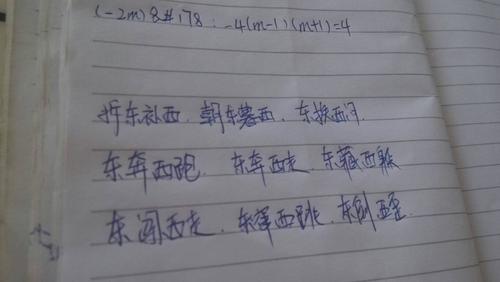 (-2m)&#178:-4(m-1)(m+1)=4
拆东补西.朝东暮西.东挨西问.
东奔西跑 东奔西走.东藏西躲
东闯西走.东窜西跳.东倒西歪.